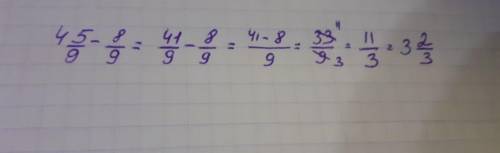 4 5/9 - 8/9 = 41/9 - 8/9 = 41-8/9 = 33/9 11 3 = 11/3 = 3 2/3